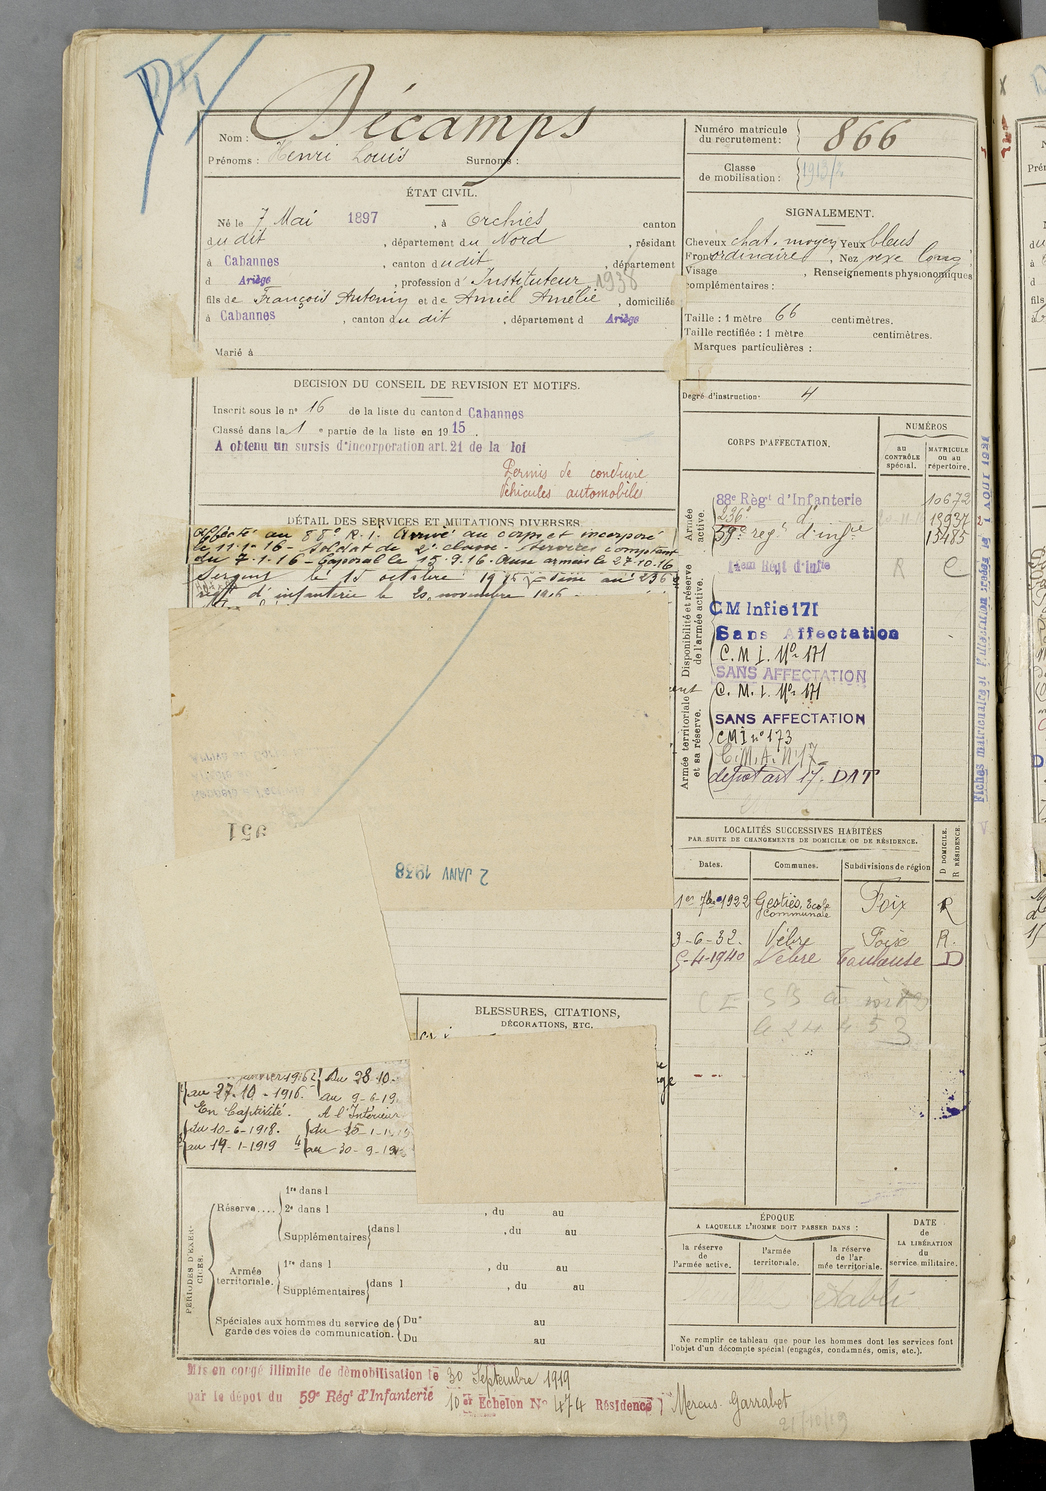 Nom : Décamps
Prénoms : Henri Louis Surnoms :
ÉTAT CIVIL.
Né le 7 Mai 1897, à Orchies canton
dudit, département du Nord, résidant
à Cabannes, canton dudit, département
d Ariège, profession d'Instituteur 1938
fils de François Antonin et de Amiel Amélie, domiciliés
à Cabannes, canton du dit, département d Ariège
Marié à
DECISION DU CONSEIL DE REVISION ET MOTIFS.
Inscrit sous le n° 16 de la liste du canton d Cabannes
Classé dans la 1 e partie de la liste en 1915.
A obtenu un sursis d'incorporation art. 21 de la loi
Permis de conduire
Véhicules automobiles
DÉTAIL DES SERVICES ET MUTATIONS DIVERSES.
Affecté au 88e R.I. Arrivé au corps et incorporé
le 11-1-16 - Soldat de 2e classe. Services comptant
du 7-1-16 - Caporal le 15-9-16. Aux armées le 27-10-16
Sergent le 15 octobre 19 au 236e
regt d'infanterie le 20 novembre 1916
951
2 JANV 1938
BLESSURES, CITATIONS,
DÉCORATIONS, ETC.
au 27-10-1916.
du 28-10-
au 9-6-19
En Captivité. A l'Intérieur
du 10-6-1918. du 15-1-19
au 14-1-1919 au 30-9-19
PÉRIODES D'EXERCICES.
Réserve....
1re dans l
2e dans l , du au
Supplémentaires dans l , du au
Armée territoriale.
1re dans l , du au
Supplémentaires dans l , du au
Spéciales aux hommes du service de garde des voies de communication.
Du au
Du au
Mis en congé illimité de démobilisation le 30 Septembre 1919
par le dépôt du 59e Régt d'Infanterie 10 er Echelon No 474 Résidence Mercus-Garrabet
21/10/19
Numéro matricule
du recrutement : 866
Classe
de mobilisation :
SIGNALEMENT.
Cheveux chat. moyen Yeux bleus
Front ordinaire, Nez rexe long
Visage , Renseignements physionomiques
complémentaires :
Taille : 1 mètre 66 centimètres.
Taille rectifiée : 1 mètre centimètres.
Marques particulières :
Degré d'instruction 4
CORPS D'AFFECTATION.
NUMÉROS
au
CONTRÔLE
spécial.
MATRICULE
ou au
répertoire.
Armée active.
88e Règt d'Infanterie 10672
236e d° 13937
59e regt d'infrie 13485
Disponibilité et réserve de l'armée active.
Régt d'Infie R C
CM Infie 171
Sans Affectation
C.M.I. No 171
SANS AFFECTATION
C.M.I. No 171
Armée territoriale et sa réserve.
SANS AFFECTATION
CMI n° 173
C.M.A. N° 17
depot art 17. DAT
Fiches matricules et d'affectation créées le 1 AOUT 1921
LOCALITÉS SUCCESSIVES HABITÉES
PAR SUITE DE CHANGEMENTS DE DOMICILE OU DE RÉSIDENCE.
Dates. Communes. Subdivisions de région
D DOMICILE.
R RÉSIDENCE.
1er 7bre 1922 Gestiès, Ecole communale Foix R
3-6-32. Vèbre Foix R.
5-4-1940 Vèbre Toulouse D
ÉPOQUE
A LAQUELLE L'HOMME DOIT PASSER DANS :
DATE
DE
LA LIBÉRATION
du
service militaire.
la réserve
de
l'armée active.
l'armée
territoriale.
la réserve
de l'ar
mée territoriale.
établi
Ne remplir ce tableau que pour les hommes dont les services font
l'objet d'un décompte spécial (engagés, condamnés, omis, etc.).